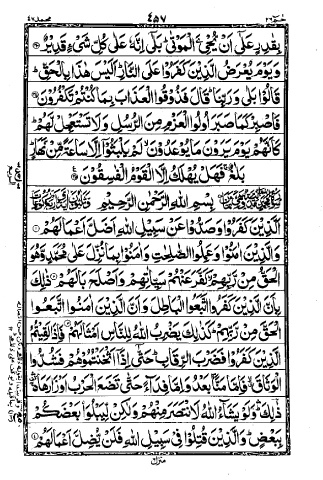 حٰمٓ ٢٦ ٤٥٧ محمد ٤٧
بِقٰدِرٍ عَلٰٓى اَنْ يُّحْيِۦَ الْمَوْتٰى ؕ بَلٰٓى اِنَّهٗ عَلٰى كُلِّ شَىْءٍ قَدِيْرٌ
وَيَوْمَ يُعْرَضُ الَّذِيْنَ كَفَرُوْا عَلَى النَّارِ ؕ اَلَيْسَ هٰذَا بِالْحَقِّ ؕ
قَالُوْا بَلٰى وَرَبِّنَا ؕ قَالَ فَذُوْقُوا الْعَذَابَ بِمَا كُنْتُمْ تَكْفُرُوْنَ
فَاصْبِرْ كَمَا صَبَرَ اُولُوا الْعَزْمِ مِنَ الرُّسُلِ وَلَا تَسْتَعْجِلْ لَّهُمْ ؕ
كَاَنَّهُمْ يَوْمَ يَرَوْنَ مَا يُوْعَدُوْنَ ۙ لَمْ يَلْبَثُوْٓا اِلَّا سَاعَةً مِّنْ نَّهَارٍ ؕ
بَلٰغٌ ۚ فَهَلْ يُهْلَكُ اِلَّا الْقَوْمُ الْفٰسِقُوْنَ
بِسْمِ اللهِ الرَّحْمٰنِ الرَّحِيْمِ
اَلَّذِيْنَ كَفَرُوْا وَصَدُّوْا عَنْ سَبِيْلِ اللهِ اَضَلَّ اَعْمَالَهُمْ
وَالَّذِيْنَ اٰمَنُوْا وَعَمِلُوا الصّٰلِحٰتِ وَاٰمَنُوْا بِمَا نُزِّلَ عَلٰى مُحَمَّدٍ وَّهُوَ
الْحَقُّ مِنْ رَّبِّهِمْ ۙ كَفَّرَ عَنْهُمْ سَيِّاٰتِهِمْ وَاَصْلَحَ بَالَهُمْ ذٰلِكَ
بِاَنَّ الَّذِيْنَ كَفَرُوا اتَّبَعُوا الْبَاطِلَ وَاَنَّ الَّذِيْنَ اٰمَنُوا اتَّبَعُوا
الْحَقَّ مِنْ رَّبِّهِمْ ؕ كَذٰلِكَ يَضْرِبُ اللهُ لِلنَّاسِ اَمْثَالَهُمْ فَاِذَا لَقِيْتُمُ
الَّذِيْنَ كَفَرُوْا فَضَرْبَ الرِّقَابِ ؕ حَتّٰٓى اِذَآ اَثْخَنْتُمُوْهُمْ فَشُدُّوا
الْوَثَاقَ ۙ فَاِمَّا مَنًّۢا بَعْدُ وَاِمَّا فِدَآءً حَتّٰى تَضَعَ الْحَرْبُ اَوْزَارَهَا
ذٰلِكَ ۛ وَلَوْ يَشَآءُ اللهُ لَانْتَصَرَ مِنْهُمْ وَلٰكِنْ لِّيَبْلُوَا۟ بَعْضَكُمْ
بِبَعْضٍ ؕ وَالَّذِيْنَ قُتِلُوْا فِىْ سَبِيْلِ اللهِ فَلَنْ يُّضِلَّ اَعْمَالَهُمْ
منزل